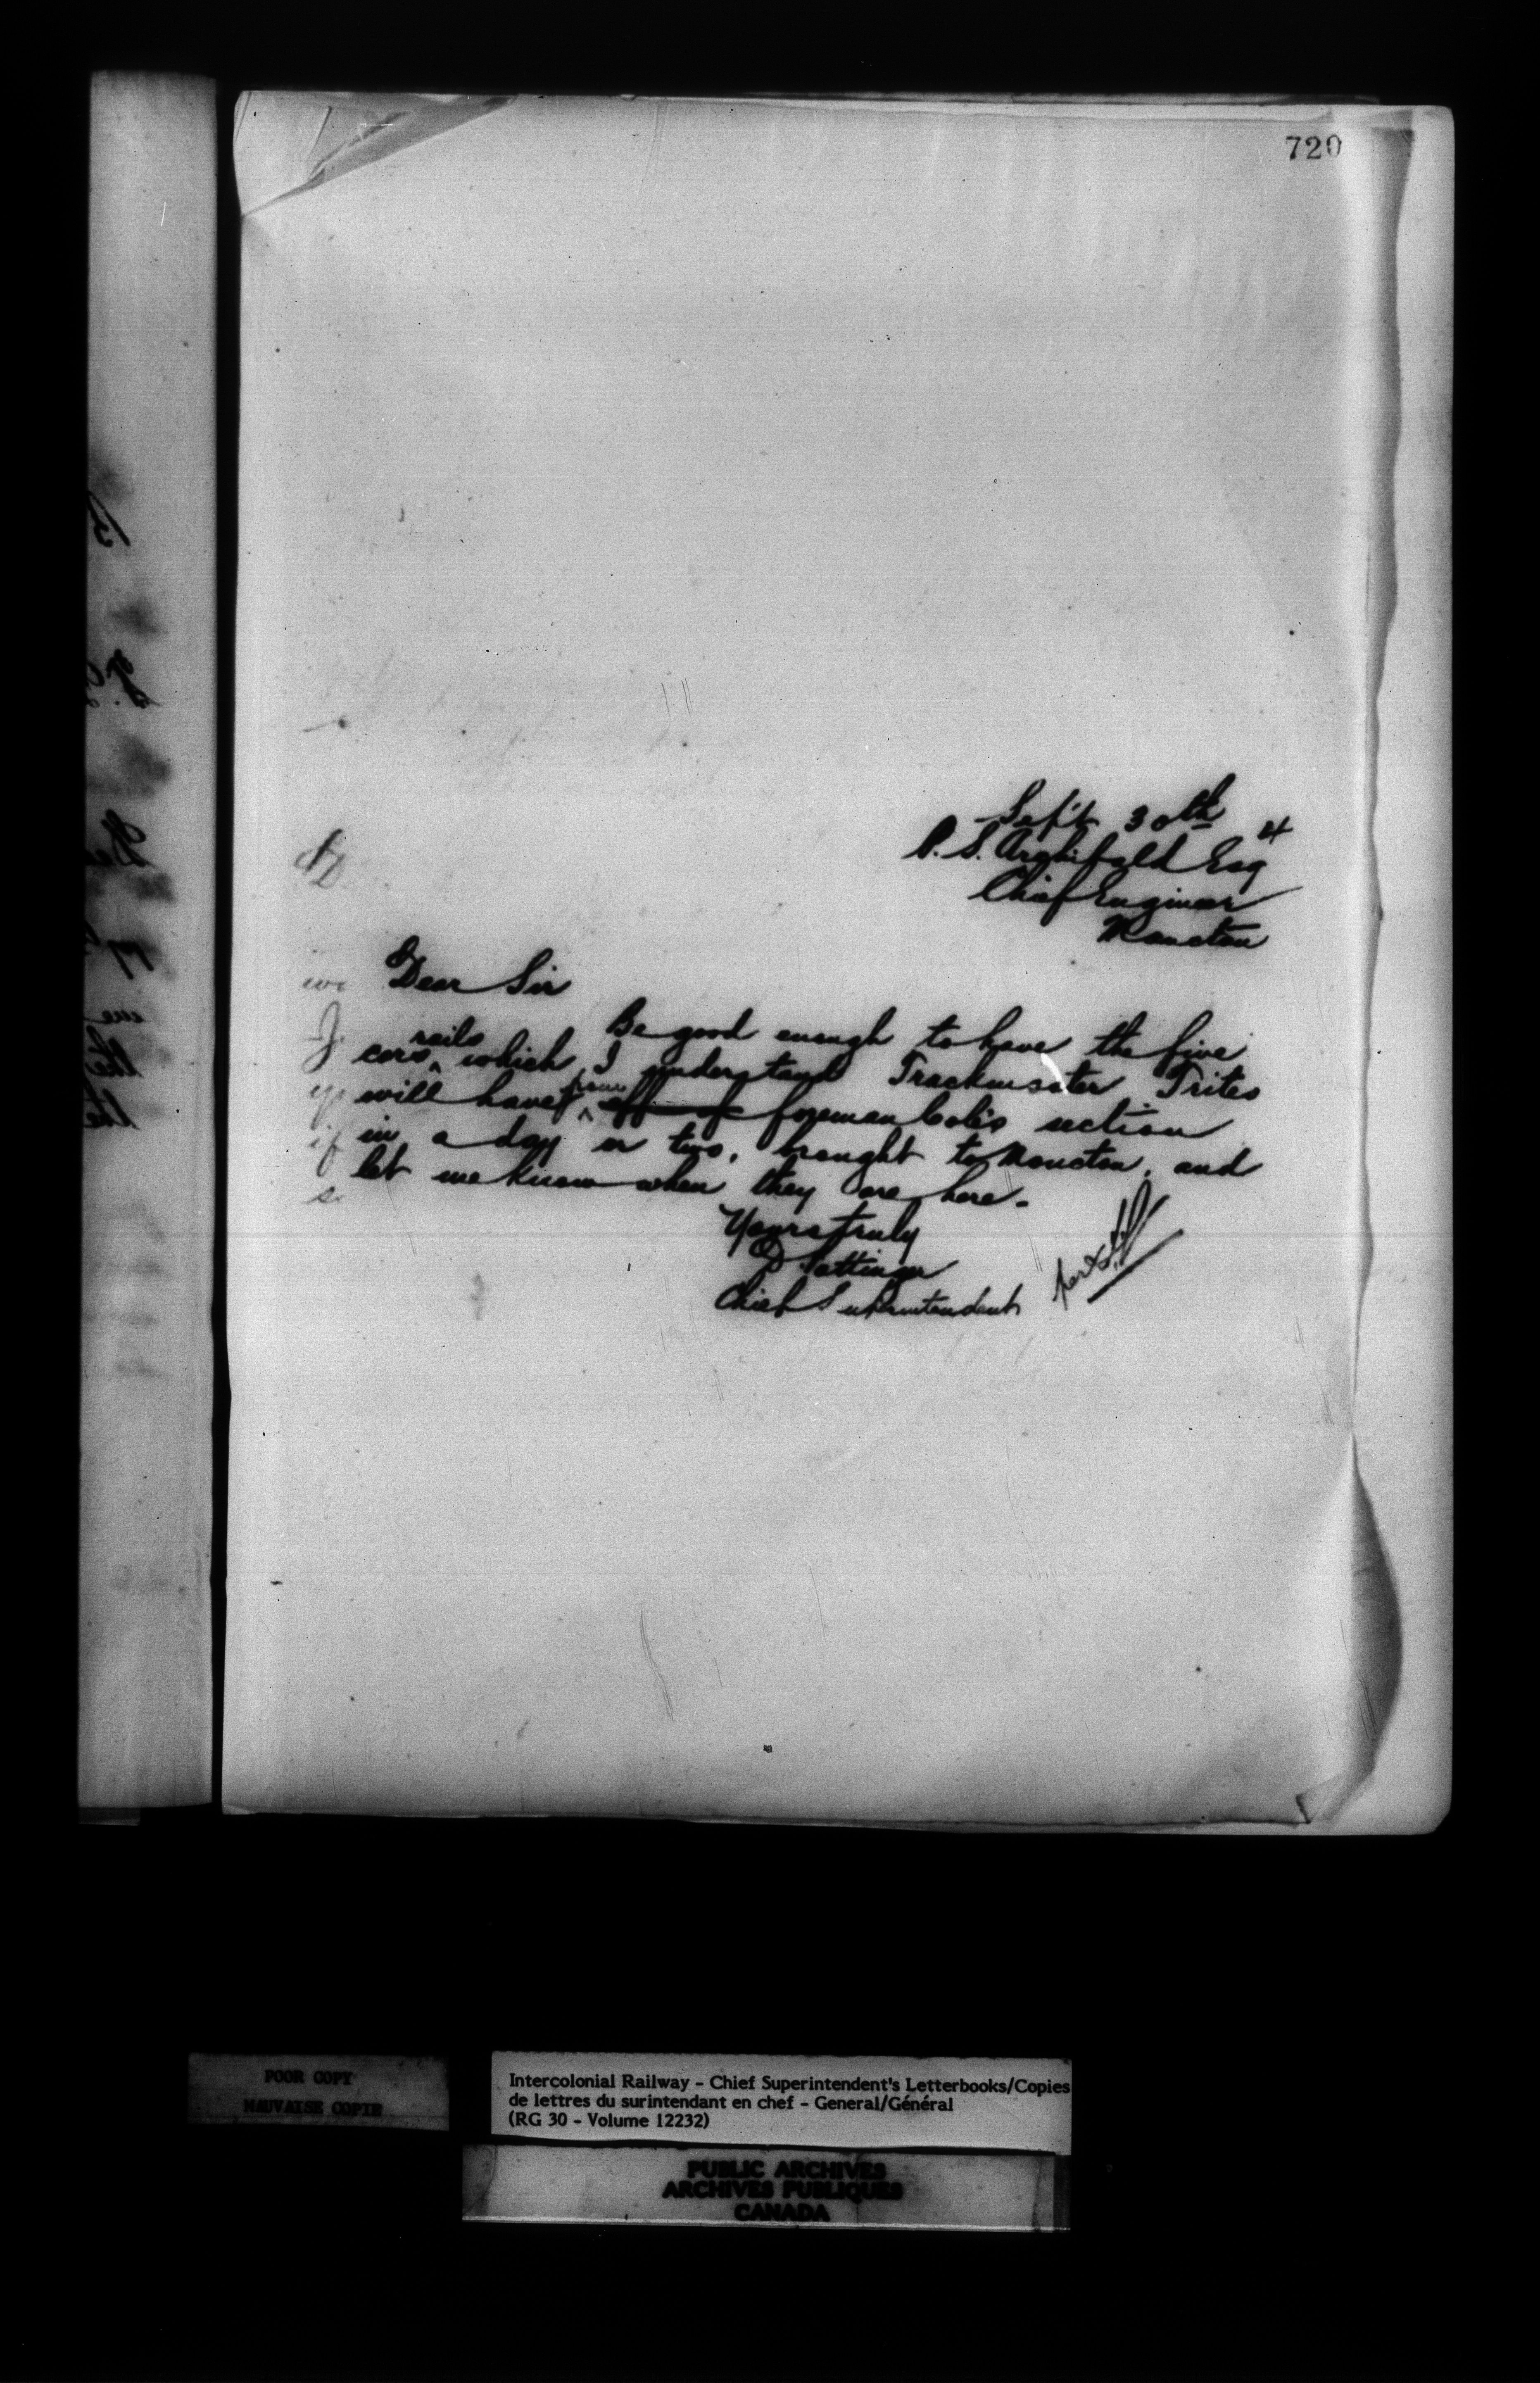 720
Sept 30th 4
P. S. Archibald Esq
Chief Engineer
Moncton
Dear Sir
Be good enough to have the five
cars ^ rails which I understand Trackmaster Trites
will have ^ from off of foreman section
in a day or two, brought to Moncton, and
let me know when they are here.
Yours truly
D Pottinger
Chief Superintendent
per
POOR COPY
MAUVAISE COPIE
Intercolonial Railway - Chief Superintendent's Letterbooks/Copies
de lettres du surintendant en chef - General/Général
(RG 30 - Volume 12232)
PUBLIC ARCHIVES
ARCHIVES PUBLIQUES
CANADA